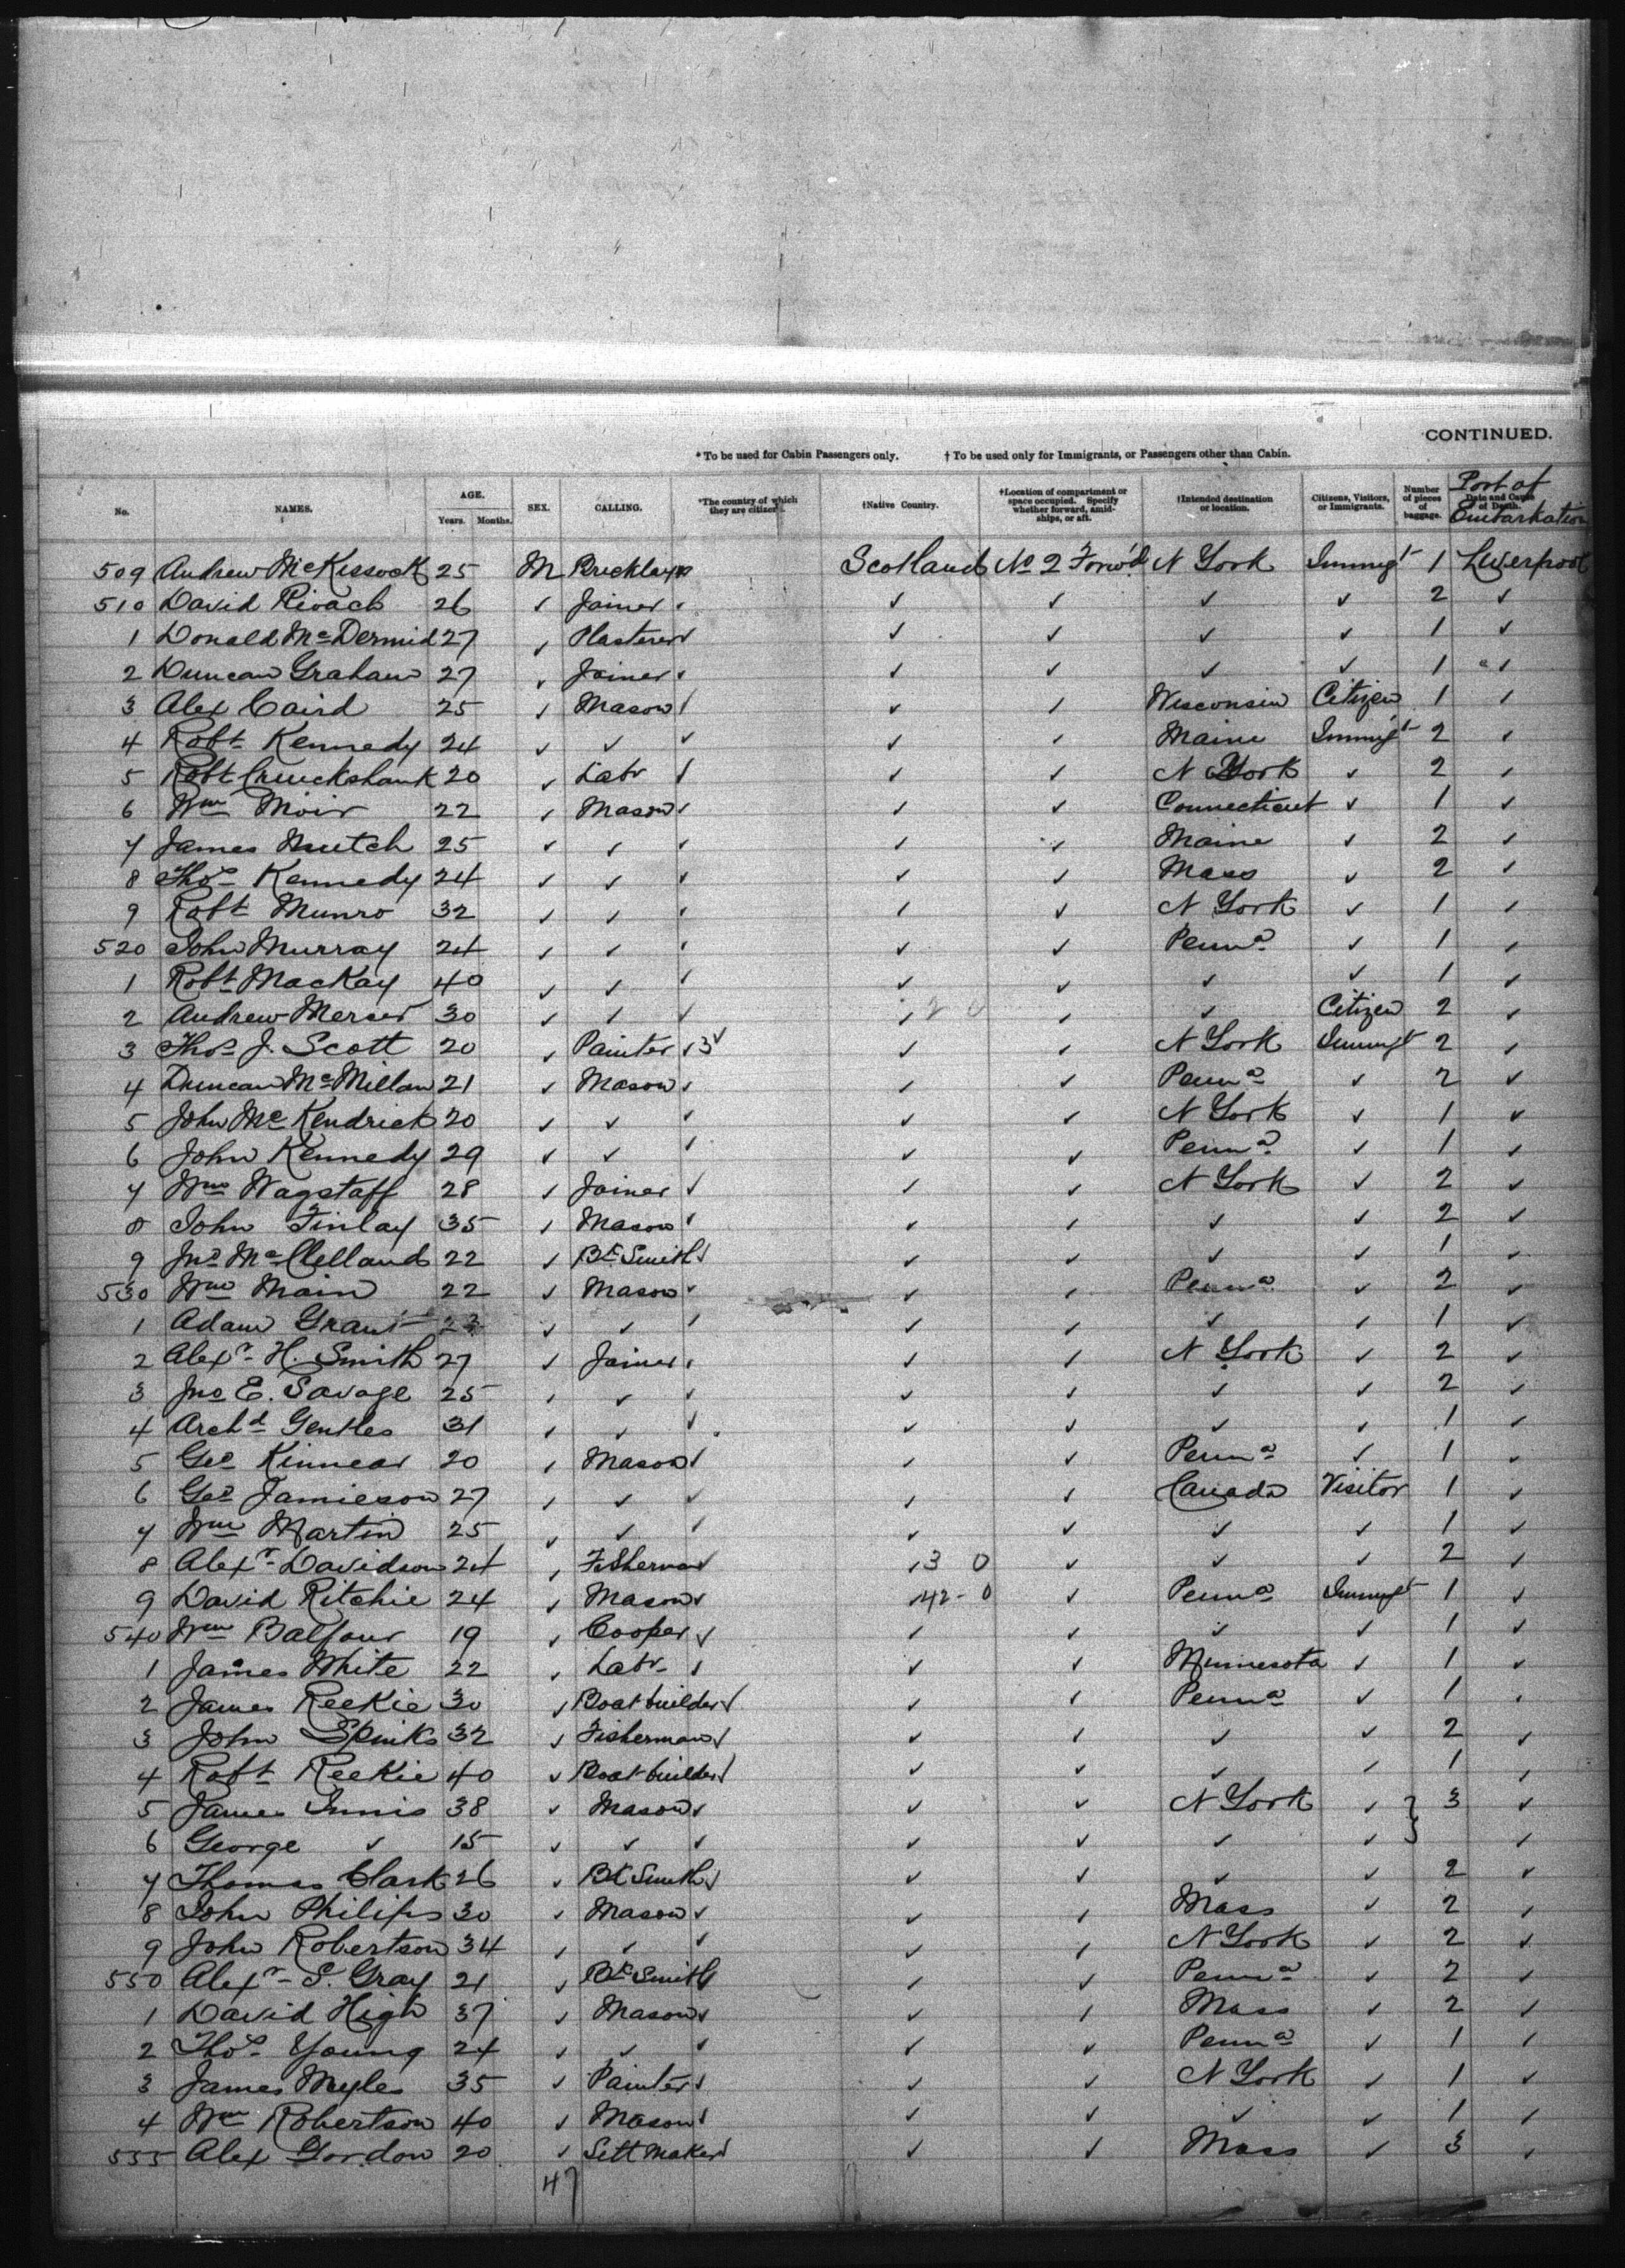 CONTINUED.
* To be used for Cabin Passengers only. † To be used only for Immigrants, or Passengers other than Cabin.
No. NAMES. AGE. Years. Months. SEX. CALLING. *The country of which they are citizens. †Native Country. †Location of compartment or space occupied. Specify whether forward, amidships, or aft. †Intended destination or location. Citizens, Visitors, or Immigrants. Number of pieces of baggage. Date and Cause of Death. Port of Embarkation
509 Andrew McKissock 25 M Bricklayr Scotland No 2 Forw'd N York Immigt 1 Liverpool
510 David Rioach 26 ✓ Joiner ✓ ✓ ✓ ✓ ✓ 2 ✓
1 Donald McDermid 27 ✓ Plasterer ✓ ✓ ✓ ✓ ✓ 1 ✓
2 Duncan Graham 27 ✓ Joiner ✓ ✓ ✓ ✓ ✓ 1 ✓
3 Alex Caird 25 ✓ Mason ✓ ✓ ✓ Wisconsin Citizen 1 ✓
4 Robt Kennedy 24 ✓ ✓ ✓ ✓ ✓ Maine Immigt 2 ✓
5 Robt Cruickshank 20 ✓ Labr ✓ ✓ ✓ N York ✓ 2 ✓
6 Wm Moir 22 ✓ Mason ✓ ✓ ✓ Connecticut ✓ 1 ✓
7 James Mutch 25 ✓ ✓ ✓ ✓ ✓ Maine ✓ 2 ✓
8 Thos Kennedy 24 ✓ ✓ ✓ ✓ ✓ Mass ✓ 2 ✓
9 Robt Munro 32 ✓ ✓ ✓ ✓ ✓ N York ✓ 1 ✓
520 John Murray 24 ✓ ✓ ✓ ✓ ✓ Penna ✓ 1 ✓
1 Robt MacKay 40 ✓ ✓ ✓ ✓ ✓ ✓ ✓ 1 ✓
2 Andrew Mercer 30 ✓ ✓ ✓ ✓ 2 0 ✓ ✓ Citizen 2 ✓
3 Thos J. Scott 20 ✓ Painter ✓ 3 ✓ ✓ ✓ N York Immigt 2 ✓
4 Duncan McMillan 21 ✓ Mason ✓ ✓ ✓ Penna ✓ 2 ✓
5 John McKendrick 20 ✓ ✓ ✓ ✓ ✓ N York ✓ 1 ✓
6 John Kennedy 29 ✓ ✓ ✓ ✓ ✓ Penna ✓ 1 ✓
7 Wm Wagstaff 28 ✓ Joiner ✓ ✓ ✓ N York ✓ 2 ✓
8 John Finlay 35 ✓ Mason ✓ ✓ ✓ ✓ ✓ 2 ✓
9 Jno McClelland 22 ✓ Bk Smith ✓ ✓ ✓ ✓ ✓ 1 ✓
530 Wm Main 22 ✓ Mason ✓ ✓ ✓ Penna ✓ 2 ✓
1 Adam Grant 23 ✓ ✓ ✓ ✓ ✓ ✓ ✓ 1 ✓
2 Alexr H. Smith 27 ✓ Joiner ✓ ✓ ✓ N York ✓ 2 ✓
3 Jno E. Savage 25 ✓ ✓ ✓ ✓ ✓ ✓ ✓ 2 ✓
4 Archd Gentles 31 ✓ ✓ ✓ ✓ ✓ ✓ ✓ 1 ✓
5 Geo Kinnear 20 ✓ Mason ✓ ✓ ✓ Penna ✓ 1 ✓
6 Geo Jamieson 27 ✓ ✓ ✓ ✓ ✓ Canada Visitor 1 ✓
7 Wm Martin 25 ✓ ✓ ✓ ✓ ✓ ✓ ✓ 1 ✓
8 Alexr Davidson 24 ✓ Fisherman ✓ ✓ 3 0 ✓ ✓ ✓ 2 ✓
9 David Ritchie 24 ✓ Mason ✓ ✓ 42-0 ✓ Penna Immigt 1 ✓
540 Wm Balfour 19 ✓ Cooper ✓ ✓ ✓ ✓ ✓ 1 ✓
1 James White 22 ✓ Labr ✓ ✓ ✓ Minnesota ✓ 1 ✓
2 James Reekie 30 ✓ Boat builder ✓ ✓ ✓ Penna ✓ 1 ✓
3 John Spinks 32 ✓ Fisherman ✓ ✓ ✓ ✓ ✓ 2 ✓
4 Robt Reekie 40 ✓ Boat builder ✓ ✓ ✓ ✓ ✓ 1 ✓
5 James Innis 38 ✓ Mason ✓ ✓ ✓ N York ✓ } 3 ✓
6 George ✓ 15 ✓ ✓ ✓ ✓ ✓ ✓ ✓ ✓
7 Thomas Clark 26 ✓ Bk Smith ✓ ✓ ✓ ✓ ✓ 2 ✓
8 John Philips 30 ✓ Mason ✓ ✓ ✓ Mass ✓ 2 ✓
9 John Robertson 34 ✓ ✓ ✓ ✓ ✓ N York ✓ 2 ✓
550 Alexr S. Gray 21 ✓ Bk Smith ✓ ✓ Penna ✓ 2 ✓
1 David High 37 ✓ Mason ✓ ✓ ✓ Mass ✓ 2 ✓
2 Thos Young 24 ✓ ✓ ✓ ✓ ✓ Penna ✓ 1 ✓
3 James Myles 35 ✓ Painter ✓ ✓ ✓ N York ✓ 1 ✓
4 Wm Robertson 40 ✓ Mason ✓ ✓ ✓ ✓ ✓ 1 ✓
555 Alex Gordon 20 ✓ Sett Maker ✓ ✓ ✓ Mass ✓ 3 ✓
47